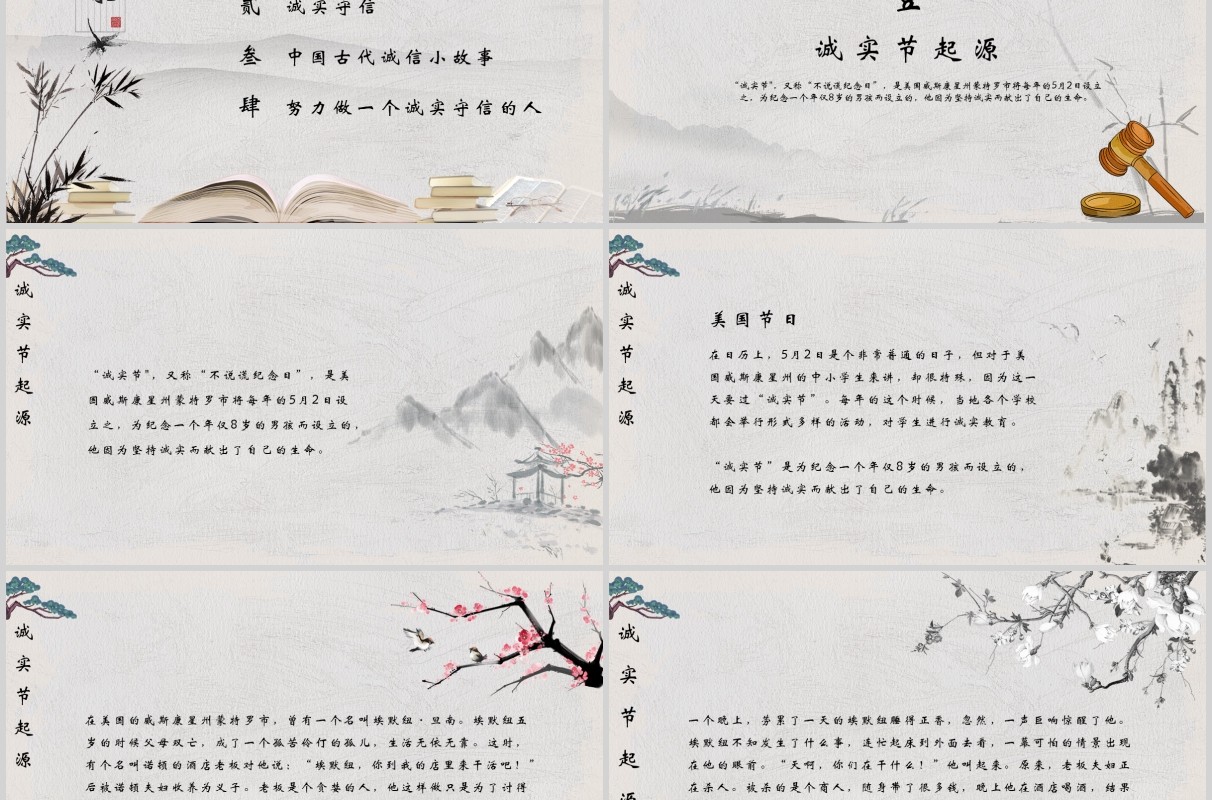 贰 诚实守信
叁 中国古代诚信小故事
肆 努力做一个诚实守信的人
五
诚实节起源
“诚实节”，又称“不说谎纪念日”，是美国威斯康星州蒙特罗市将每年的5月2日设立
之，为纪念一个年仅8岁的男孩而设立的，他因为坚持诚实而献出了自己的生命。
诚实节起源
“诚实节”，又称“不说谎纪念日”，是美
国威斯康星州蒙特罗市将每年的5月2日设
立之，为纪念一个年仅8岁的男孩而设立的，
他因为坚持诚实而献出了自己的生命。
诚实节起源
美国节日
在日历上，5月2日是个非常普通的日子，但对于美
国威斯康星州的中小学生来讲，却很特殊，因为这一
天要过“诚实节”。每年的这个时候，当地各个学校
都会举行形式多样的活动，对学生进行诚实教育。
“诚实节”是为纪念一个年仅8岁的男孩而设立的，
他因为坚持诚实而献出了自己的生命。
诚实节起源
在美国的威斯康星州蒙特罗市，曾有一个名叫埃默纽·旦南。埃默纽五
岁的时候父母双亡，成了一个孤苦伶仃的孤儿，生活无依无靠。这时，
有个名叫诺顿的酒店老板对他说：“埃默纽，你到我的店里来干活吧！”
后被诺顿夫妇收养为义子。老板是个贪婪的人，他这样做只是为了讨得
诚实节起源
一个晚上，劳累了一天的埃默纽睡得正香，忽然，一声巨响惊醒了他。
埃默纽不知发生了什么事，连忙起床到外面去看，一幕可怕的情景出现
在他的眼前。“天啊，你们在干什么！”他叫起来。原来，老板夫妇正
在杀人。被杀的是个商人，随身带了很多钱，晚上他在酒店喝酒，结果